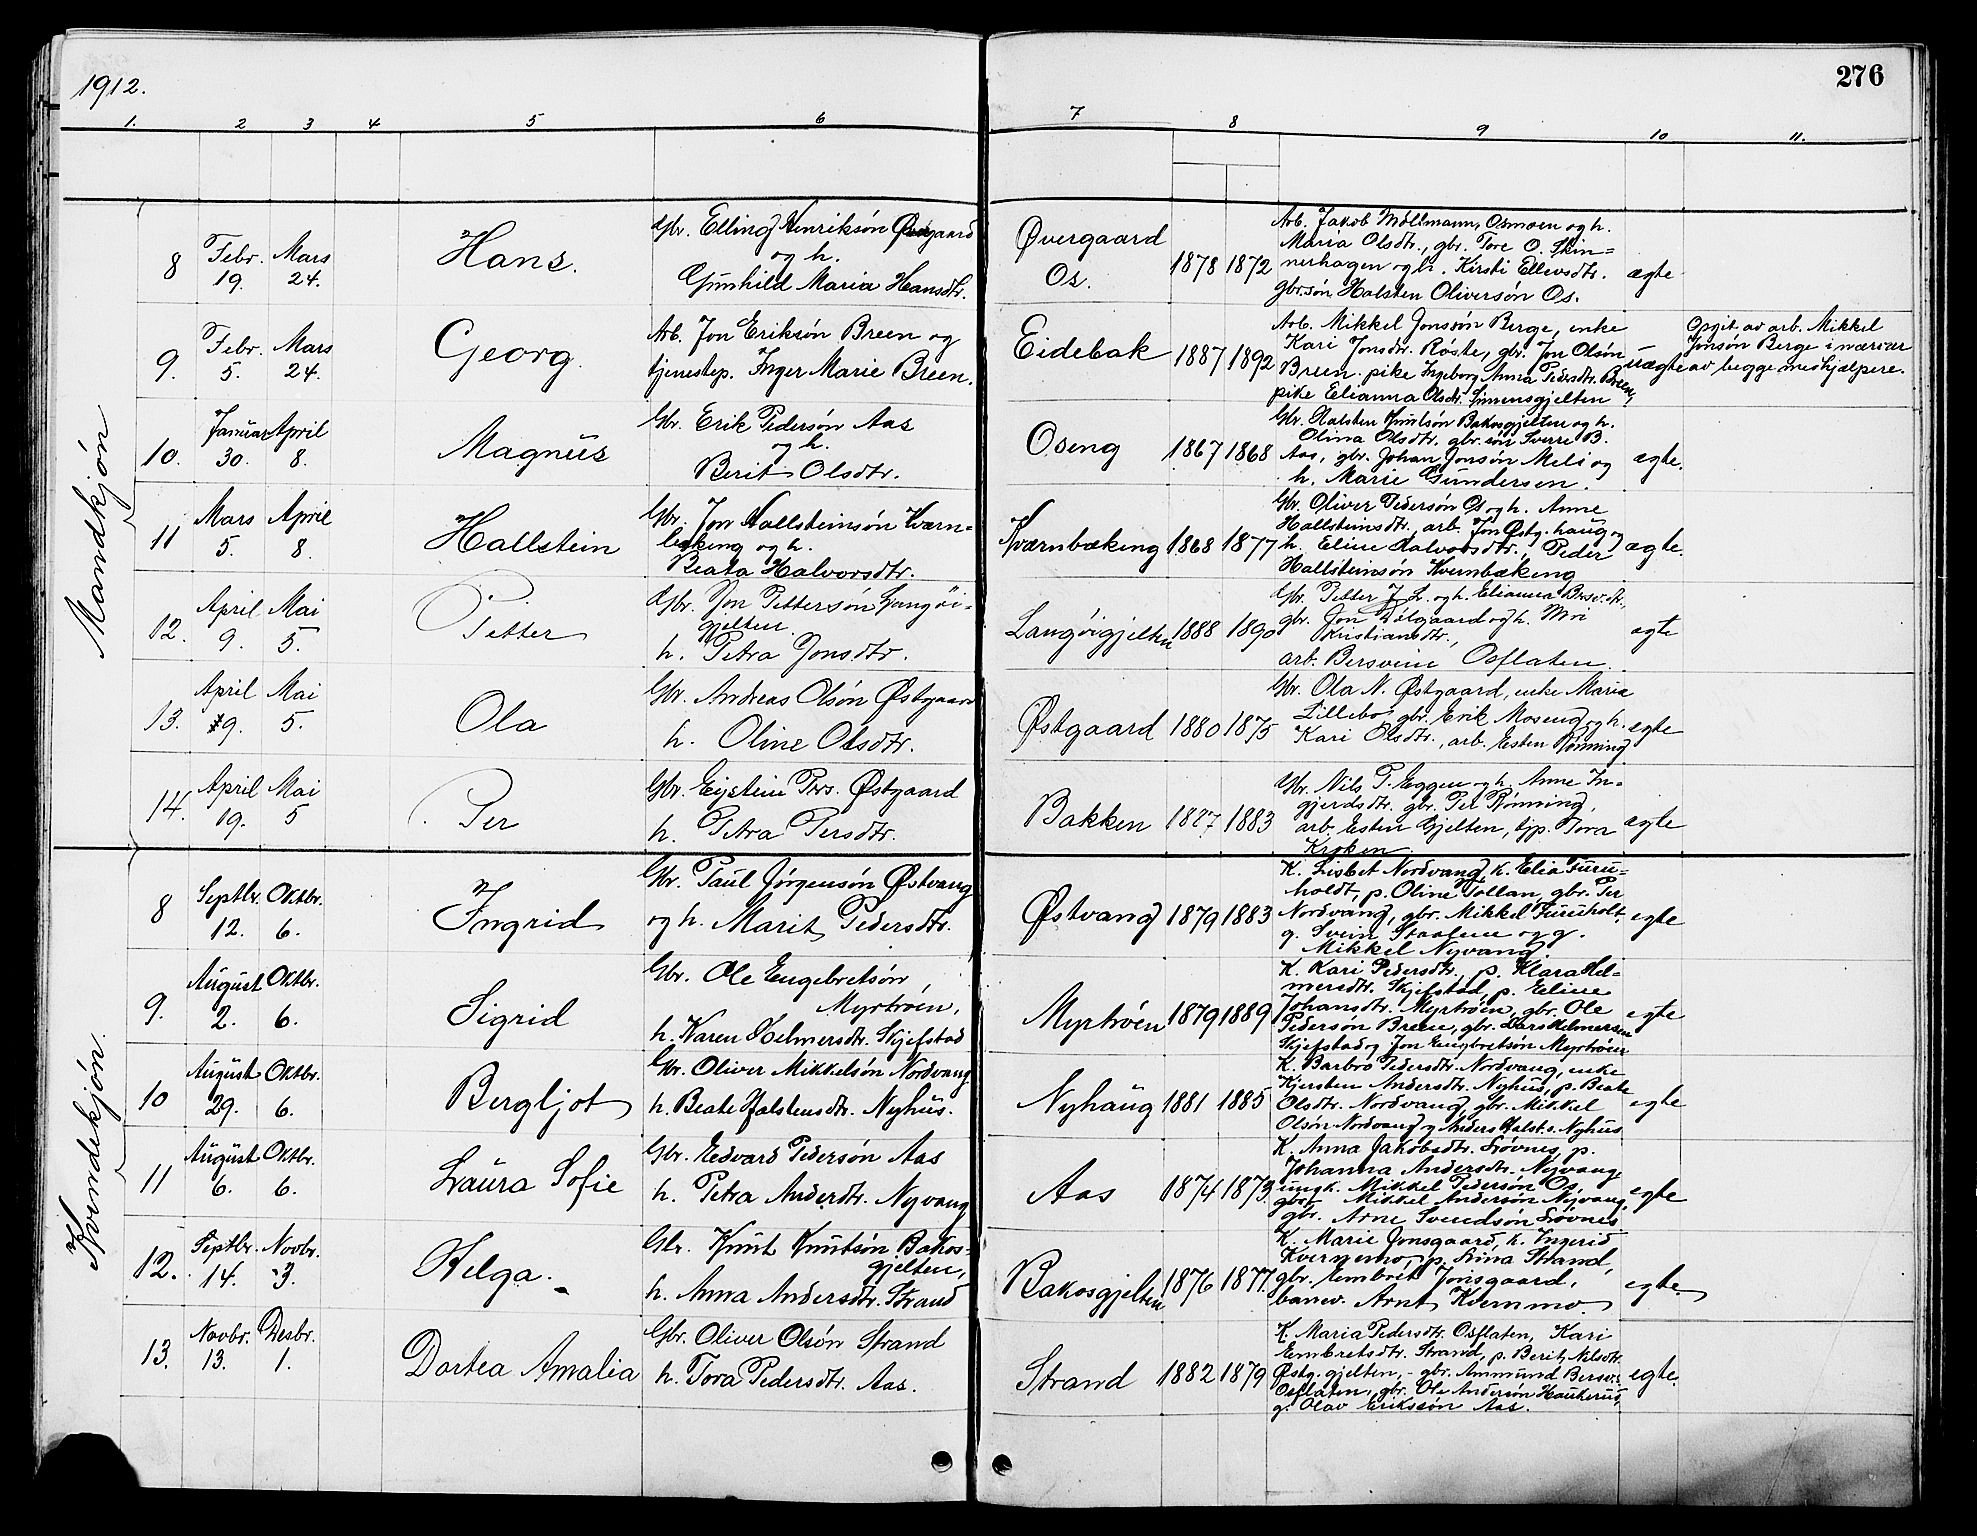 1912.
276
1. 2 3 4 5 6 7 8 9 10 11.
Mandkjøn
8 Febr. 19. Mars 24. Hans.
Gbr. Elling Henriksön Øvergaard
og h.
Gunhild Maria Hansdtr.
Øvergaard
Os.
1878 1872
Arb. Jakob Möllmann, Osmoen og h.
Maria Olsdtr., gbr. Tore O. Skin-
nerhagen og h. Kirsti Ellevsdtr.
gbr.søn Halsten Oliversön Os.
ægte
9. Febr. 5. Mars 24. Georg.
Arb. Jon Eriksön Breen og
tjenestep. Inger Marie Breen.
Eidebak 1887 1892
Arb. Mikkel Jonsön Berge, enke
Kari Jonsdtr. Røste, gbr. Jon Olsön
Breen. pike Ingeborg Anna Pedersdtr. Breen,
pike Elianna Olsdtr. Simensgjelten
uægte
Opgit av arb. Mikkel
Jonsön Berge i nærvær
av begge medhjælpere.
10. Januar 30. April 8. Magnus
Gbr. Erik Pedersön Aas
og h.
Berit Olsdtr.
Oseng 1867 1868
Gbr. Halsten Knutsön Bakosgjelten og h.
Olina Olsdtr. gbr. søn Sverre B.
Aas, gbr. Johan Jonsön Meli og
h. Marie Gundersen.
ægte.
11 Mars 5. April 8. Hallstein
Gbr. Jon Hallsteinsön Kværn-
bæking og h.
Beata Halvorsdtr.
Kværnbæking 1868 1877
Gbr. Oliver Pedersön Os og h. Anne
Hallsteinsdtr. arb. Jon Østg.haug og
h. Eline Halvorsdtr., Peder
Hallsteinsön Kvernbæking
ægte.
12. April 9. Mai 5. Petter
Gbr. Jon Pettersön Langöi-
gjelten
h. Petra Jonsdtr.
Langöigjelten 1888 1890
Gbr. Petter J. L. og h. Elianna Bersv.dtr.,
gbr. Jon Dölgaard og h. Mri
Kristiansdtr.,
arb. Bersvein Osflaten.
ægte
13. April 9. Mai 5. Ola
Gbr. Andreas Olsön Østgaard
h. Oline Olsdtr.
Østgaard 1880 1875
Gbr. Ola N. Østgaard, enke Maria
Lillebo, gbr. Erik Moseng og h.
Kari Olsdtr., arb. Esten Rønning
egte
14. April 19. Mai 5 Per
Gbr. Eystein Prs. Østgaard
h. Petra Persdtr.
Bakken 1887 1883
Gbr. Nils P. Eggen og h. Anne In-
gjerdsdtr. gbr. Per Rønning,
arb. Esten Gjelten, tjp. Tora
Kroken
ægte
Kvindekjön.
8 Septbr. 12. Oktbr. 6. Ingrid
Gbr. Paul Jörgensön Østvang
og h. Marit Pedersdtr.
Østvang 1879 1883
K. Lisbet Nordvang, k. Elia Furu-
holdt, p. Oline Tollan, gbr. Per
Nordvang, gbr. Mikkel Furuholt,
g. Svein Staalen og g.
Mikkel Nyvang
egte
9. August 2. Oktbr. 6. Sigrid
Gbr. Ole Engebretsön
Myrtröen,
h. Karen Helmersdtr. Skjefstad
Myrtröen 1879 1889
K. Kari Pedersdtr., p. Klara Hel-
mersdtr. Skjefstad p. Eline
Johansdtr. Myrtröen, gbr. Ole
Pederson Breen, gbr. Lars Helmersen
Skjefstad og Jon Engbretsön Myrtröen
egte
10 August 29. Oktbr. 6. Bergljot
Gbr. Oliver Mikkelsön Nordvang
h. Beate Halstensdtr. Nyhus.
Nyhaug 1881 1885
K. Barbro Pedersdtr. Nordvang, enke
Kjersten Andersdtr. Nyhus, p. Beate
Olsdtr. Nordvang, gbr. Mikkel
Olsön Nordvang og Anders Halst.s. Nyhus
egte
11 August 6. Oktbr. 6. Laura Sofie
Gbr. Edvard Pedersön Aas
h. Petra Anderdtr. Nyvang
Aas 1874 1873.
K. Anna Jakobsdtr. Lövnes, p.
Johanna Andersdtr. Nyvang,
ungk. Mikkel Pedersön Os,
gbr. Mikkel Andersön Nyvang,
gbr. Arne Svendsön Lövnes
egte
12. Septbr. 14. Novbr. 3. Helga.
Gbr. Knut Knutsön Bakos-
gjelten,
h. Anna Andersdtr. Strand
Bakosgjelten 1876 1877.
K. Marie Jonsgaard, k. Ingerid
Kvernemo, p. Lina Strand,
gbr. Embret Jonsgaard,
banev. Arnt Kvernmo.
egte
13. Novbr. 13. Desbr. 1. Dortea Amalia
Gbr. Oliver Olsön Strand
h. Tora Pedersdtr. Aas.
Strand 1882 1879
K. Maria Pedersdtr. Osflaten, Kari
Embretsdtr. Strand, p. Berit Nilsdtr.
Østg.gjelten, - gbr. Ammund Bersv.s.
Osflaten, gbr. Ole Andersön Haukerud,
g. Olav Eriksson Aas.
egte.